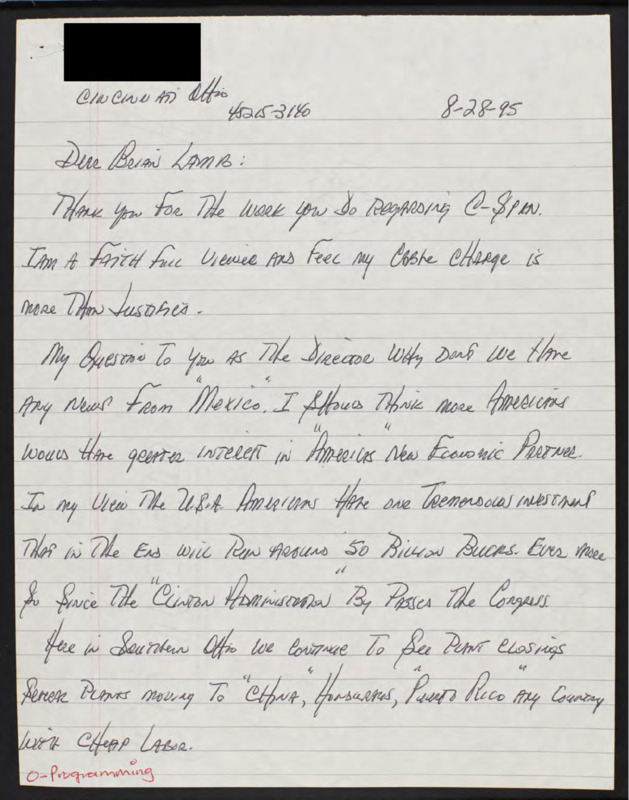 Cincinnati Ohio
45215-3140 8-28-95
Dear Brian Lamb:
Thank you for the work you do regarding C-SPAN.
I am a faith full viewer and feel my cable charge is
more than justified.
My question to you as the director why dont we have
any news from "Mexico". I should think more Americans
would have greater interest in "Americas" new economic partner.
In my view the U.S.A. Americans have one tremendous investment
that in the end will run around 50 billion bucks. Ever more
so since the "Clinton Administration" by passed the Congress
Here in Southern Ohio we continue to see plant closings
plants moving to "China", Honduras, "Puerto Rico" any country
with cheap labor.
O-Programming